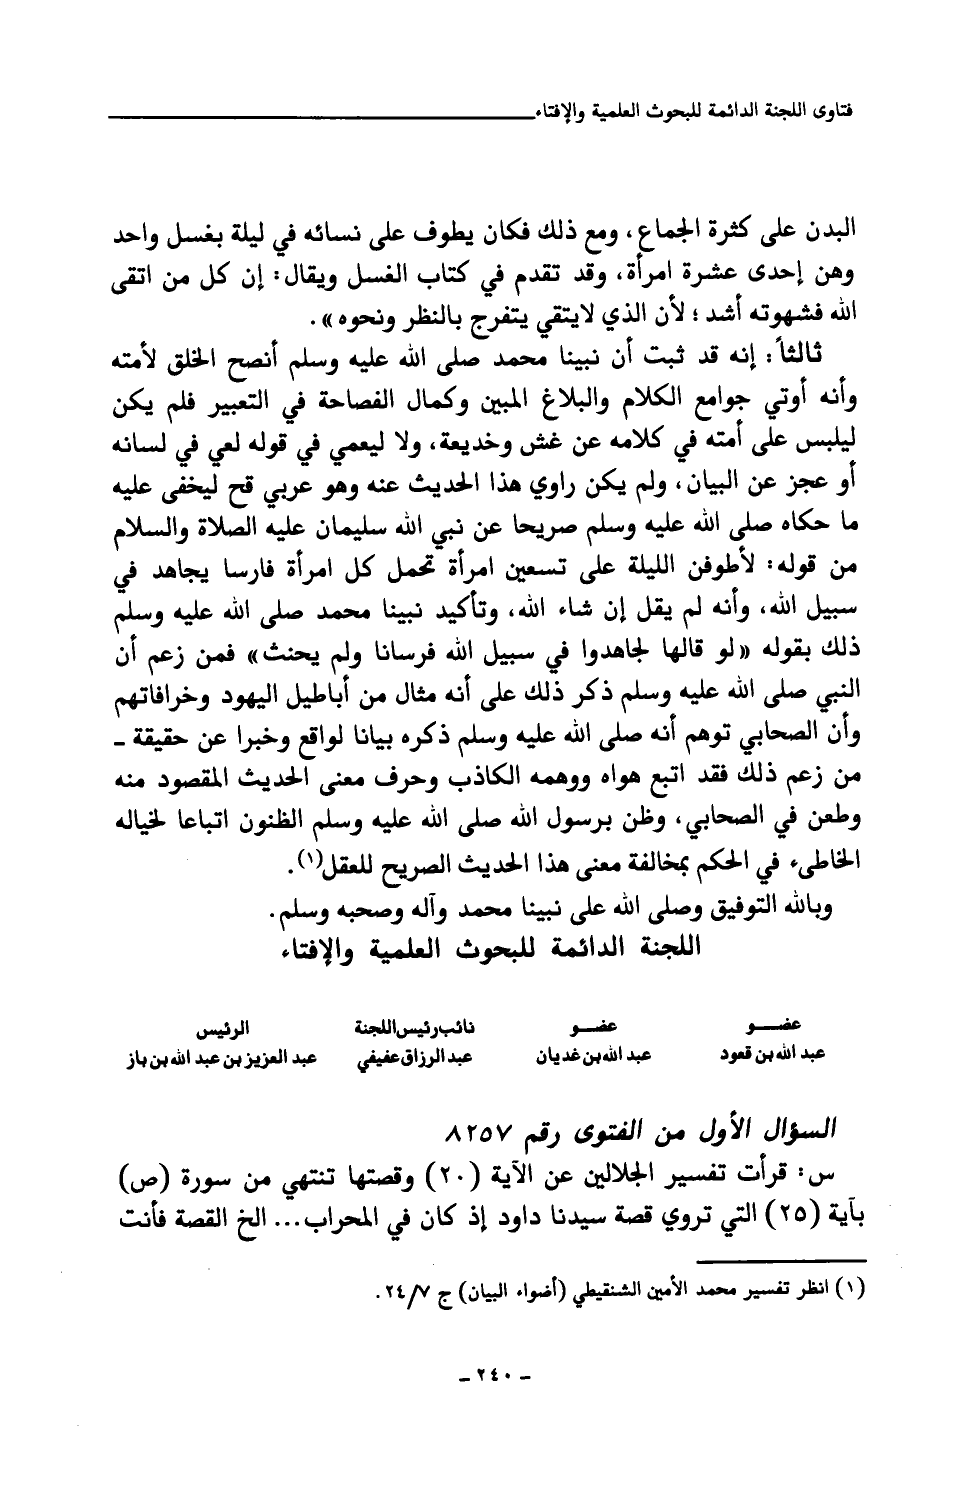 فتاوى اللجنة الدائمة للبحوث العلمية والإفتاء
البدن على كثرة الجماع، ومع ذلك فكان يطوف على نسائه في ليلة بغسل واحد
وهن إحدى عشرة امرأة، وقد تقدم في كتاب الغسل ويقال: إن كل من اتقى
الله فشهوته أشد؛ لأن الذي لايتقي يتفرج بالنظر ونحوه».
ثالثاً: إنه قد ثبت أن نبينا محمد صلى الله عليه وسلم أنصح الخلق لأمته
وأنه أوتي جوامع الكلام والبلاغ المبين وكمال الفصاحة في التعبير فلم يكن
ليلبس على أمته في كلامه عن غش وخديعة، ولا ليعمي في قوله لعي في لسانه
أو عجز عن البيان، ولم يكن راوي هذا الحديث عنه وهو عربي قح ليخفى عليه
ما حكاه صلى الله عليه وسلم صريحا عن نبي الله سليمان عليه الصلاة والسلام
من قوله: لأطوفن الليلة على تسعين امرأة تحمل كل امرأة فارسا يجاهد في
سبيل الله، وأنه لم يقل إن شاء الله، وتأكيد نبينا محمد صلى الله عليه وسلم
ذلك بقوله «لو قالها لجاهدوا في سبيل الله فرسانا ولم يحنث» فمن زعم أن
النبي صلى الله عليه وسلم ذكر ذلك على أنه مثال من أباطيل اليهود وخرافاتهم
وأن الصحابي توهم أنه صلى الله عليه وسلم ذكره بيانا لواقع وخبرا عن حقيقة ـ
من زعم ذلك فقد اتبع هواه ووهمه الكاذب وحرف معنى الحديث المقصود منه
وطعن في الصحابي، وظن برسول الله صلى الله عليه وسلم الظنون اتباعا لخياله
الخاطىء في الحكم بمخالفة معنى هذا الحديث الصريح للعقل(١).
وبالله التوفيق وصلى الله على نبينا محمد وآله وصحبه وسلم.
اللجنة الدائمة للبحوث العلمية والإفتاء
عضــو عضــو نائب رئيس اللجنة الرئيس
عبد الله بن قعود عبد الله بن غديان عبد الرزاق عفيفي عبد العزيز بن عبد الله بن باز
السؤال الأول من الفتوى رقم ٨٢٥٧
س: قرأت تفسير الجلالين عن الآية (٢٠) وقصتها تنتهي من سورة (ص)
بآية (٢٥) التي تروي قصة سيدنا داود إذ كان في المحراب... الخ القصة فأنت
(١) انظر تفسير محمد الأمين الشنقيطي (أضواء البيان) ج ٢٤/٧.
ـ ٢٤٠ ـ